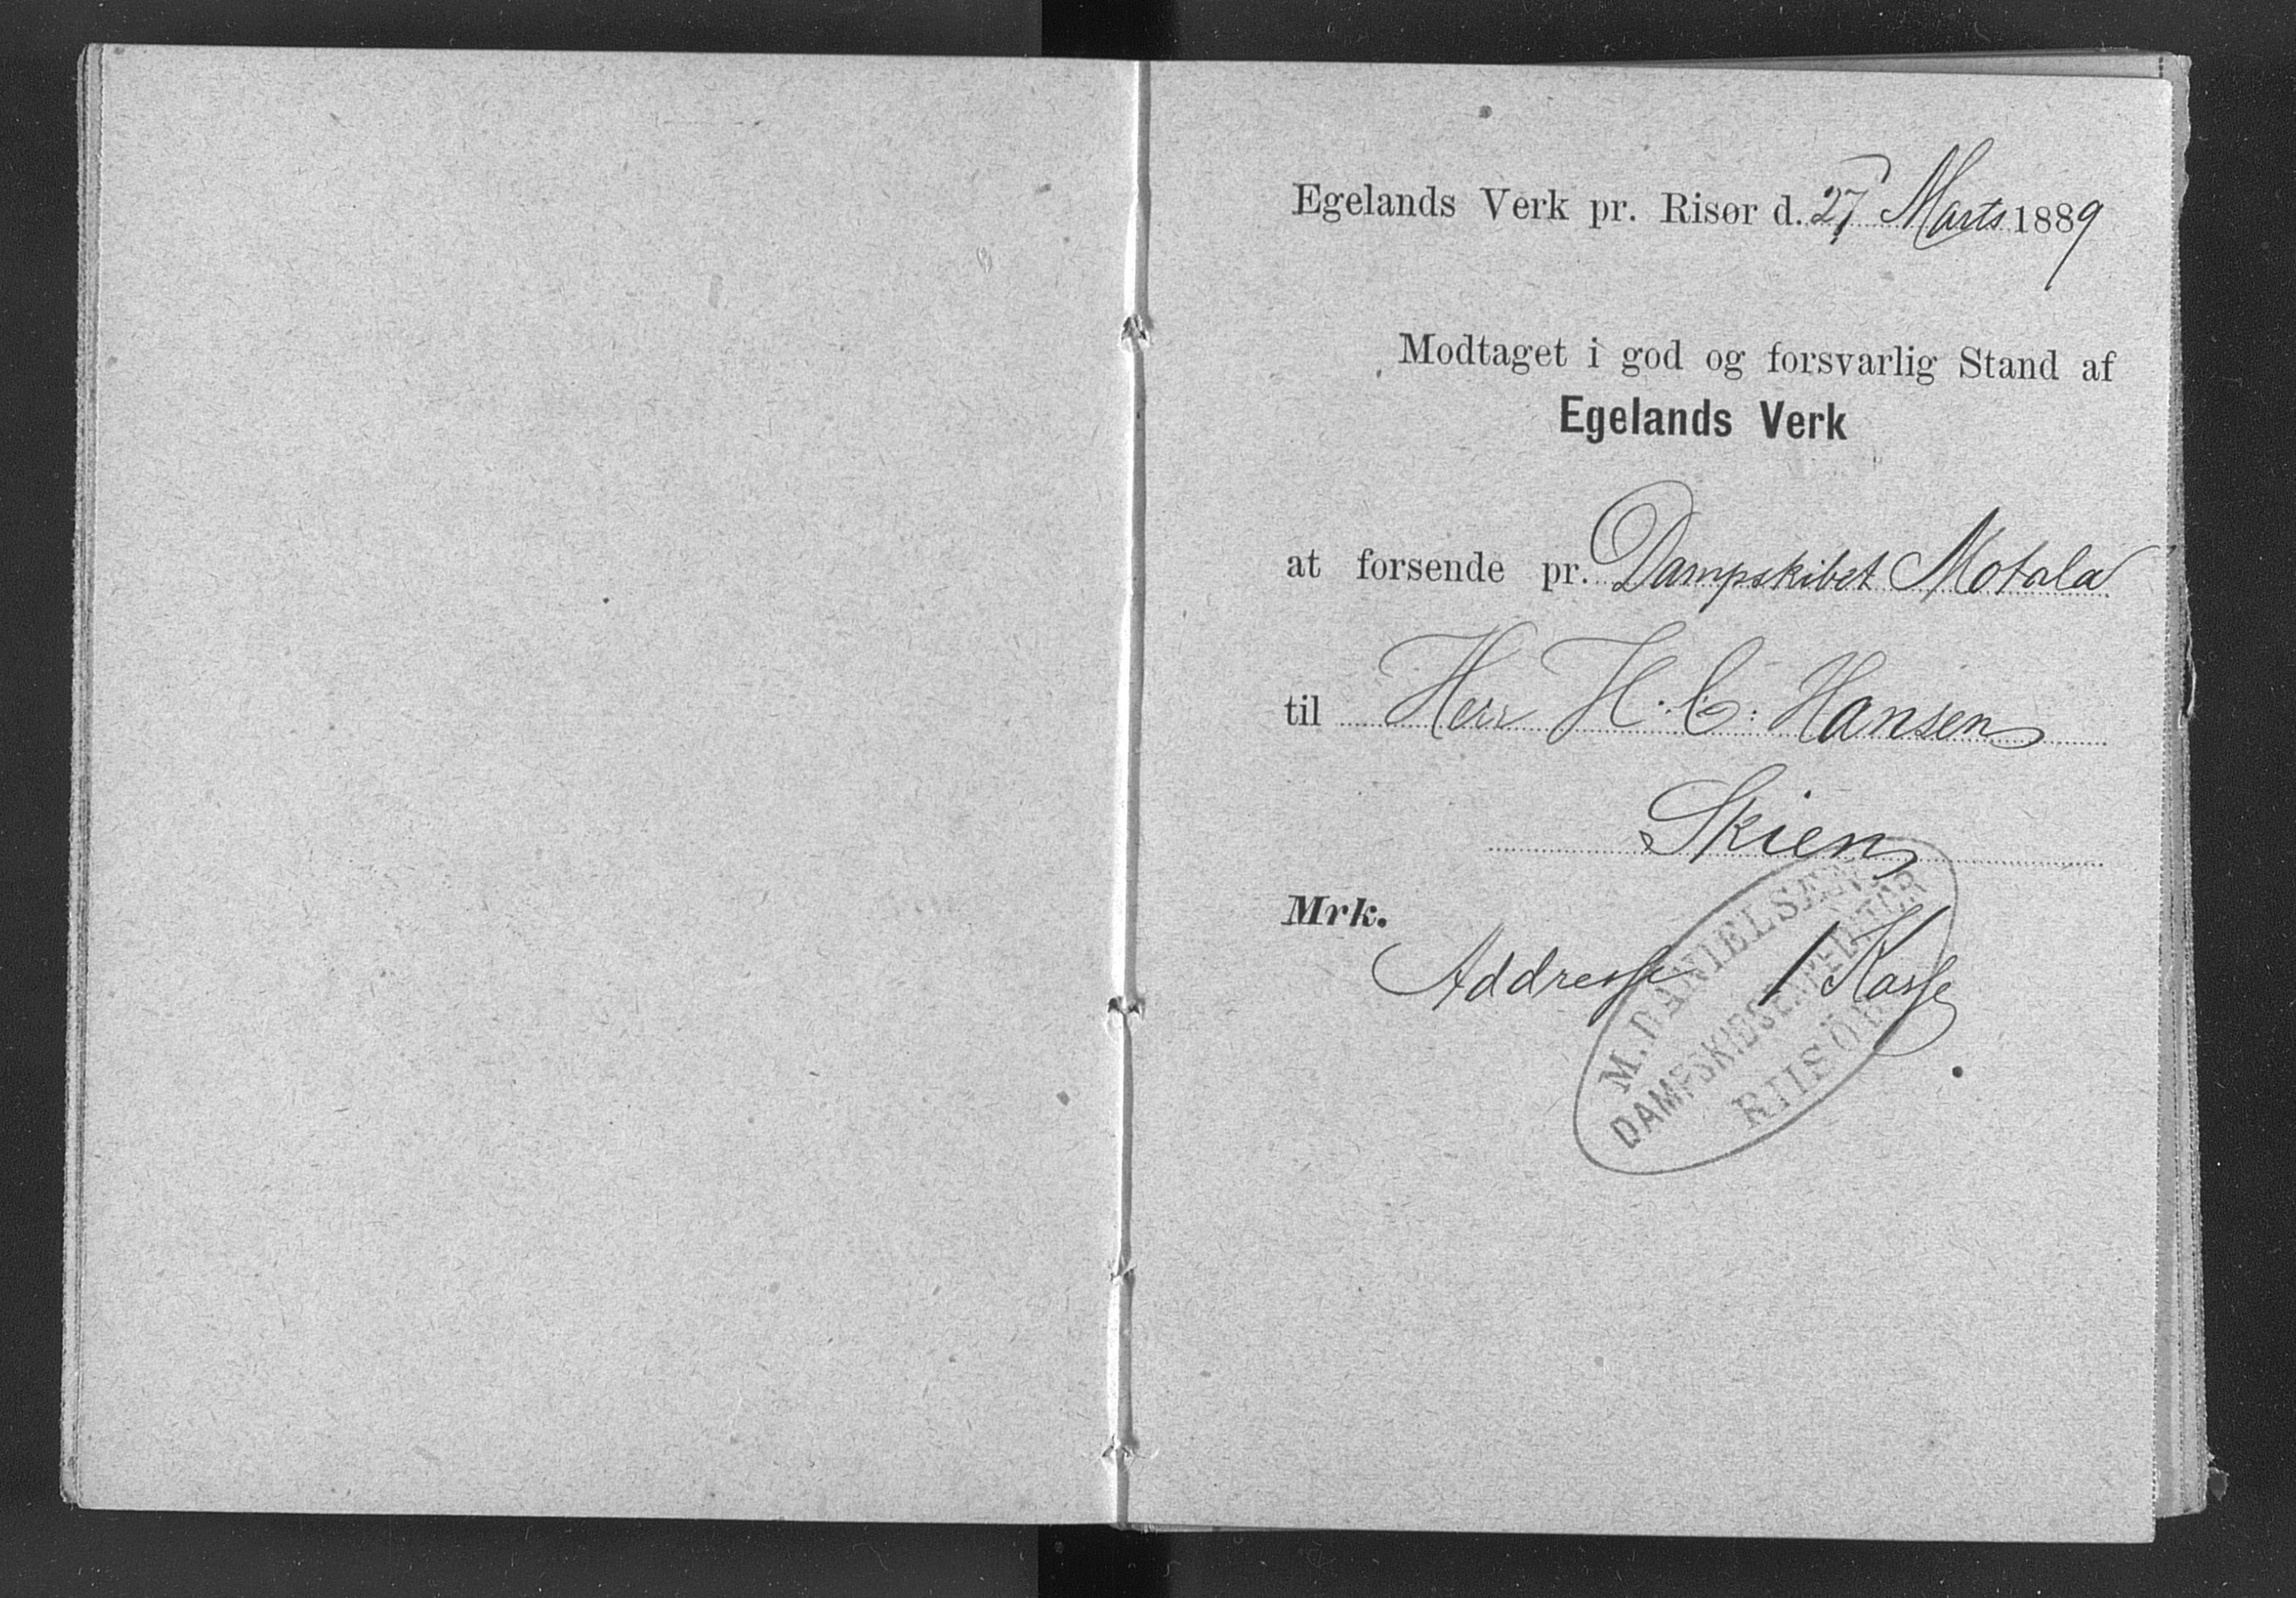 Egelands Verk pr. Risør d. 27 Marts 1889
Modtaget i god og forsvarlig Stand af
Egelands Verk
at forsende pr. Dampskibet Motala
til Herr H. C. Hansen
Skien
Mrk.
Addresse 1 Kasse
M. DANIELSEN
DAMPSKIBSEXPEDITØR
RIISÖR